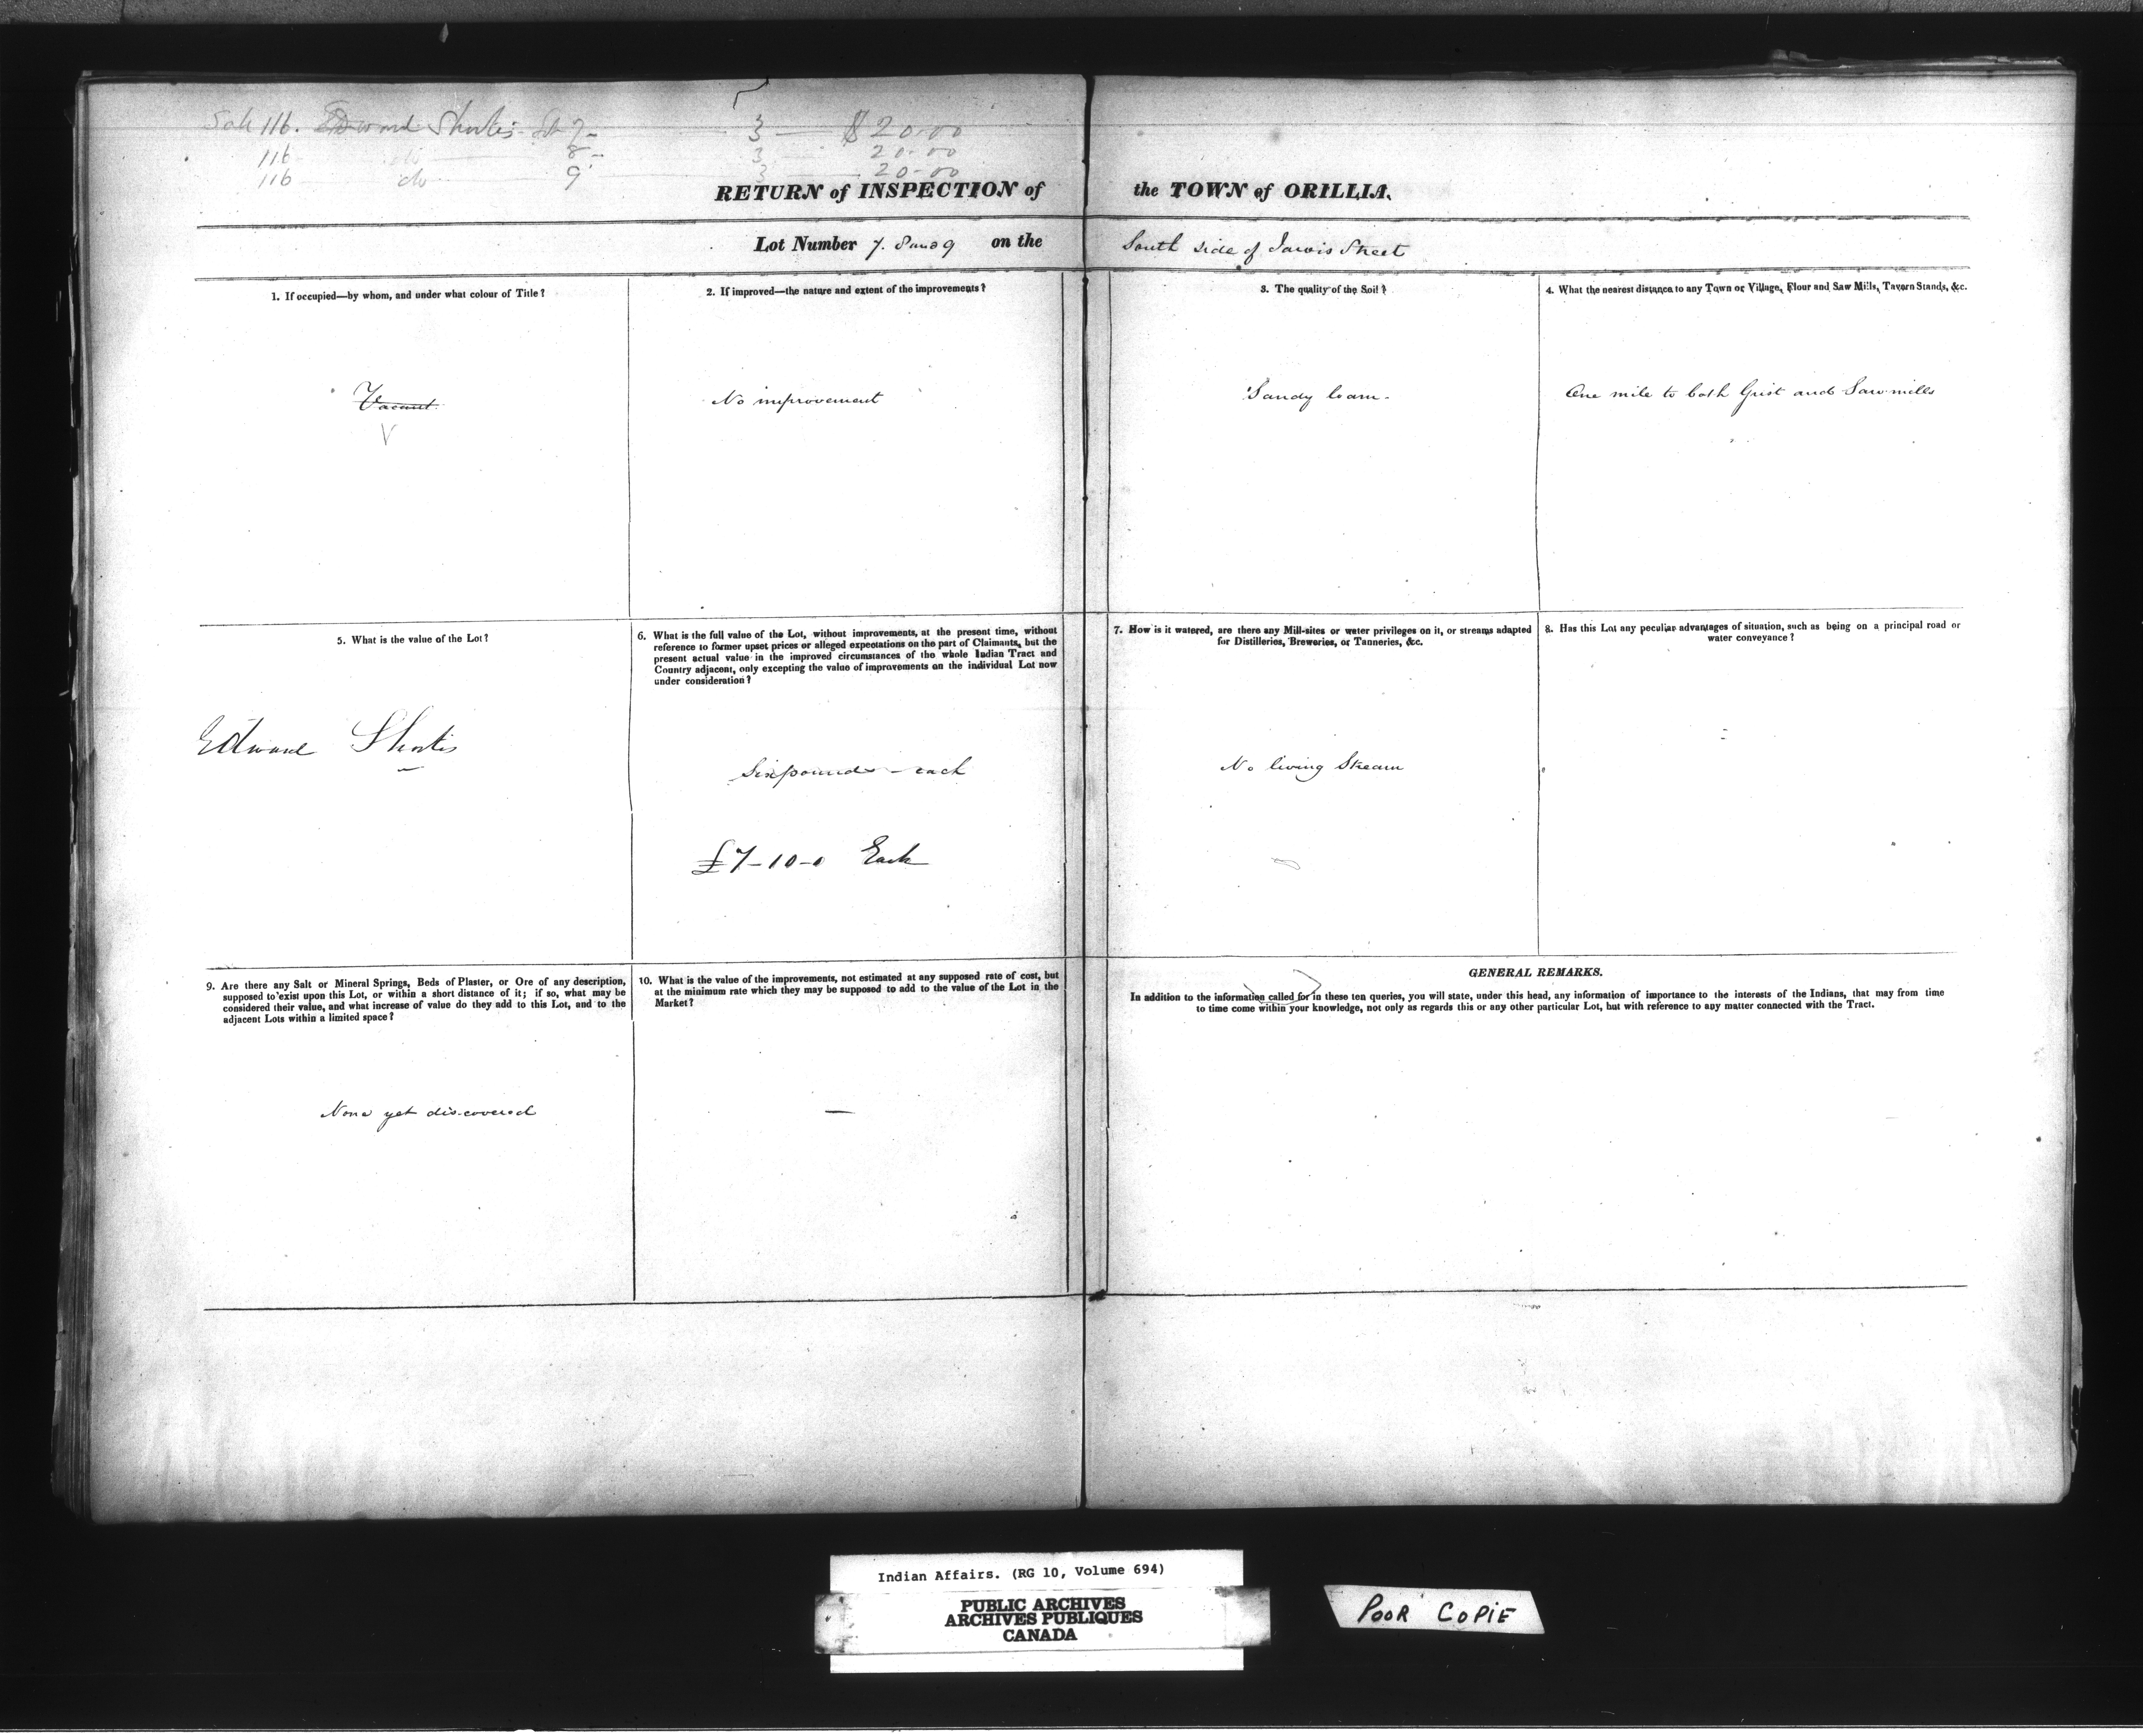 Sale 116. Edward Shortis Lot 7 - 3 - $20.00
116 do 8 - 3 20.00
116 do 9 3 20.00
RETURN of INSPECTION of the TOWN of ORILLIA.
Lot Number 7. 8 and 9 on the South side of Jarvis Street
1. If occupied—by whom, and under what colour of Title?
Vacant.
V
2. If improved—the nature and extent of the improvements?
No improvement
3. The quality of the Soil?
Sandy loam.
4. What the nearest distance to any Town or Village, Flour and Saw Mills, Tavern Stands, &c.
One mile to both Grist and Saw mills
5. What is the value of the Lot?
Edward Shortis
6. What is the full value of the Lot, without improvements, at the present time, without
reference to former upset prices or alleged expectations on the part of Claimants, but the
present actual value in the improved circumstances of the whole Indian Tract and
Country adjacent, only excepting the value of improvements on the individual Lot now
under consideration?
Six pounds - each
£7-10-0 Each
7. How is it watered, are there any Mill-sites or water privileges on it, or streams adapted
for Distilleries, Breweries, or Tanneries, &c.
No living Stream
8. Has this Lot any peculiar advantages of situation, such as being on a principal road or
water conveyance?
9. Are there any Salt or Mineral Springs, Beds of Plaster, or Ore of any description,
supposed to exist upon this Lot, or within a short distance of it; if so, what may be
considered their value, and what increase of value do they add to this Lot, and to the
adjacent Lots within a limited space?
None yet discovered
10. What is the value of the improvements, not estimated at any supposed rate of cost, but
at the minimum rate which they may be supposed to add to the value of the Lot in the
Market?
—
GENERAL REMARKS.
In addition to the information called for in these ten queries, you will state, under this head, any information of importance to the interests of the Indians, that may from time
to time come within your knowledge, not only as regards this or any other particular Lot, but with reference to any matter connected with the Tract.
Indian Affairs. (RG 10, Volume 694)
PUBLIC ARCHIVES
ARCHIVES PUBLIQUES
CANADA
POOR COPIE